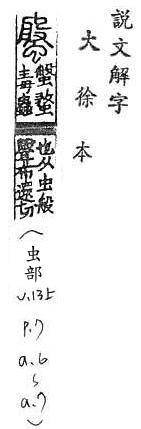 説文解字
大徐本
螌
螌蝥
毒蟲
也从虫般
聲布還切
(虫部
v.13上
p.7
a.6
~
a.7)